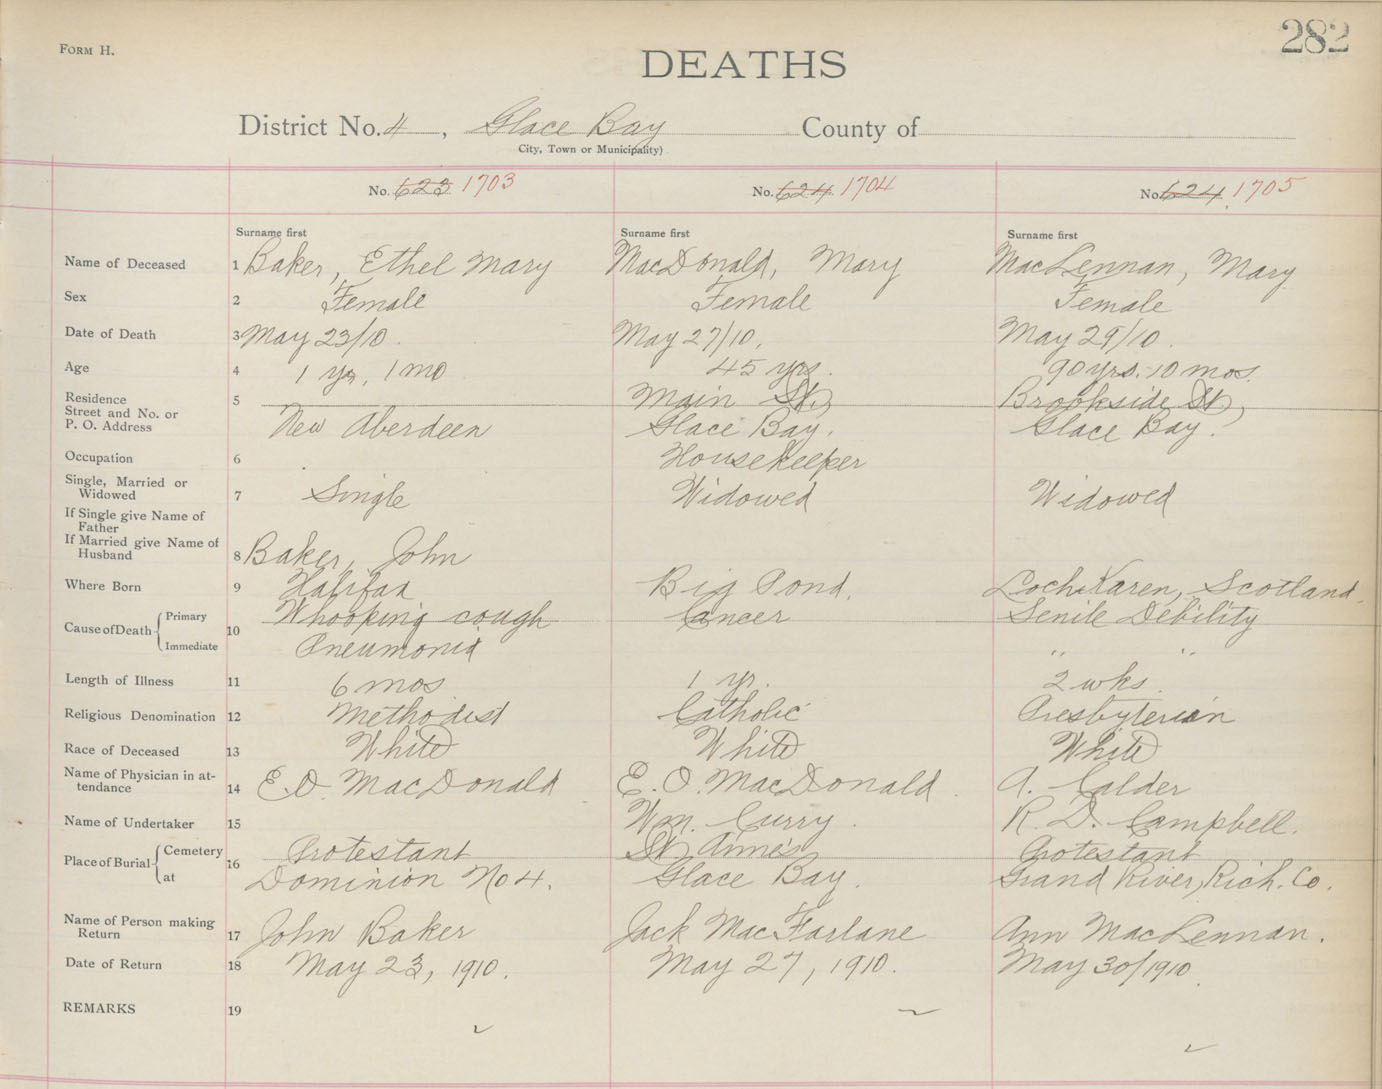 282
Form H.
DEATHS
District No. 4, Glace Bay County of
City, Town or Municipality)
No. 623 1703 No. 624 1704 No. 624 1705
Surname first Surname first Surname first
Name of Deceased 1 Baker, Ethel Mary MacDonald, Mary MacLennan, Mary
Sex 2 Female Female Female
Date of Death 3 May 23/10. May 27/10. May 29/10.
Age 4 1 yr, 1 mo 45 yrs. 90 yrs. 10 mos.
Residence 5 Main St., Brookside St,
Street and No. or
P. O. Address New Aberdeen Glace Bay. Glace Bay.
Occupation 6 Housekeeper
Single, Married or
Widowed 7 Single Widowed Widowed
If Single give Name of
Father
If Married give Name of
Husband 8 Baker, John
Where Born 9 Halifax Big Pond. Loch Karen, Scotland.
Cause of Death Primary 10 Whooping cough Cancer Senile Debility
Immediate Pneumonia " "
Length of Illness 11 6 mos 1 yr. 2 wks.
Religious Denomination 12 Methodist Catholic Presbyterian
Race of Deceased 13 White White White
Name of Physician in at-
tendance 14 E.O. MacDonald E. O. MacDonald. A. Calder
Name of Undertaker 15 Wm. Curry. R. D. Campbell.
Place of Burial Cemetery 16 Protestant St Anne's Protestant
at Dominion No 4. Glace Bay. Grand River, Rich. Co.
Name of Person making
Return 17 John Baker Jack MacFarlane Ann MacLennan.
Date of Return 18 May 23, 1910. May 27, 1910. May 30/1910.
REMARKS 19